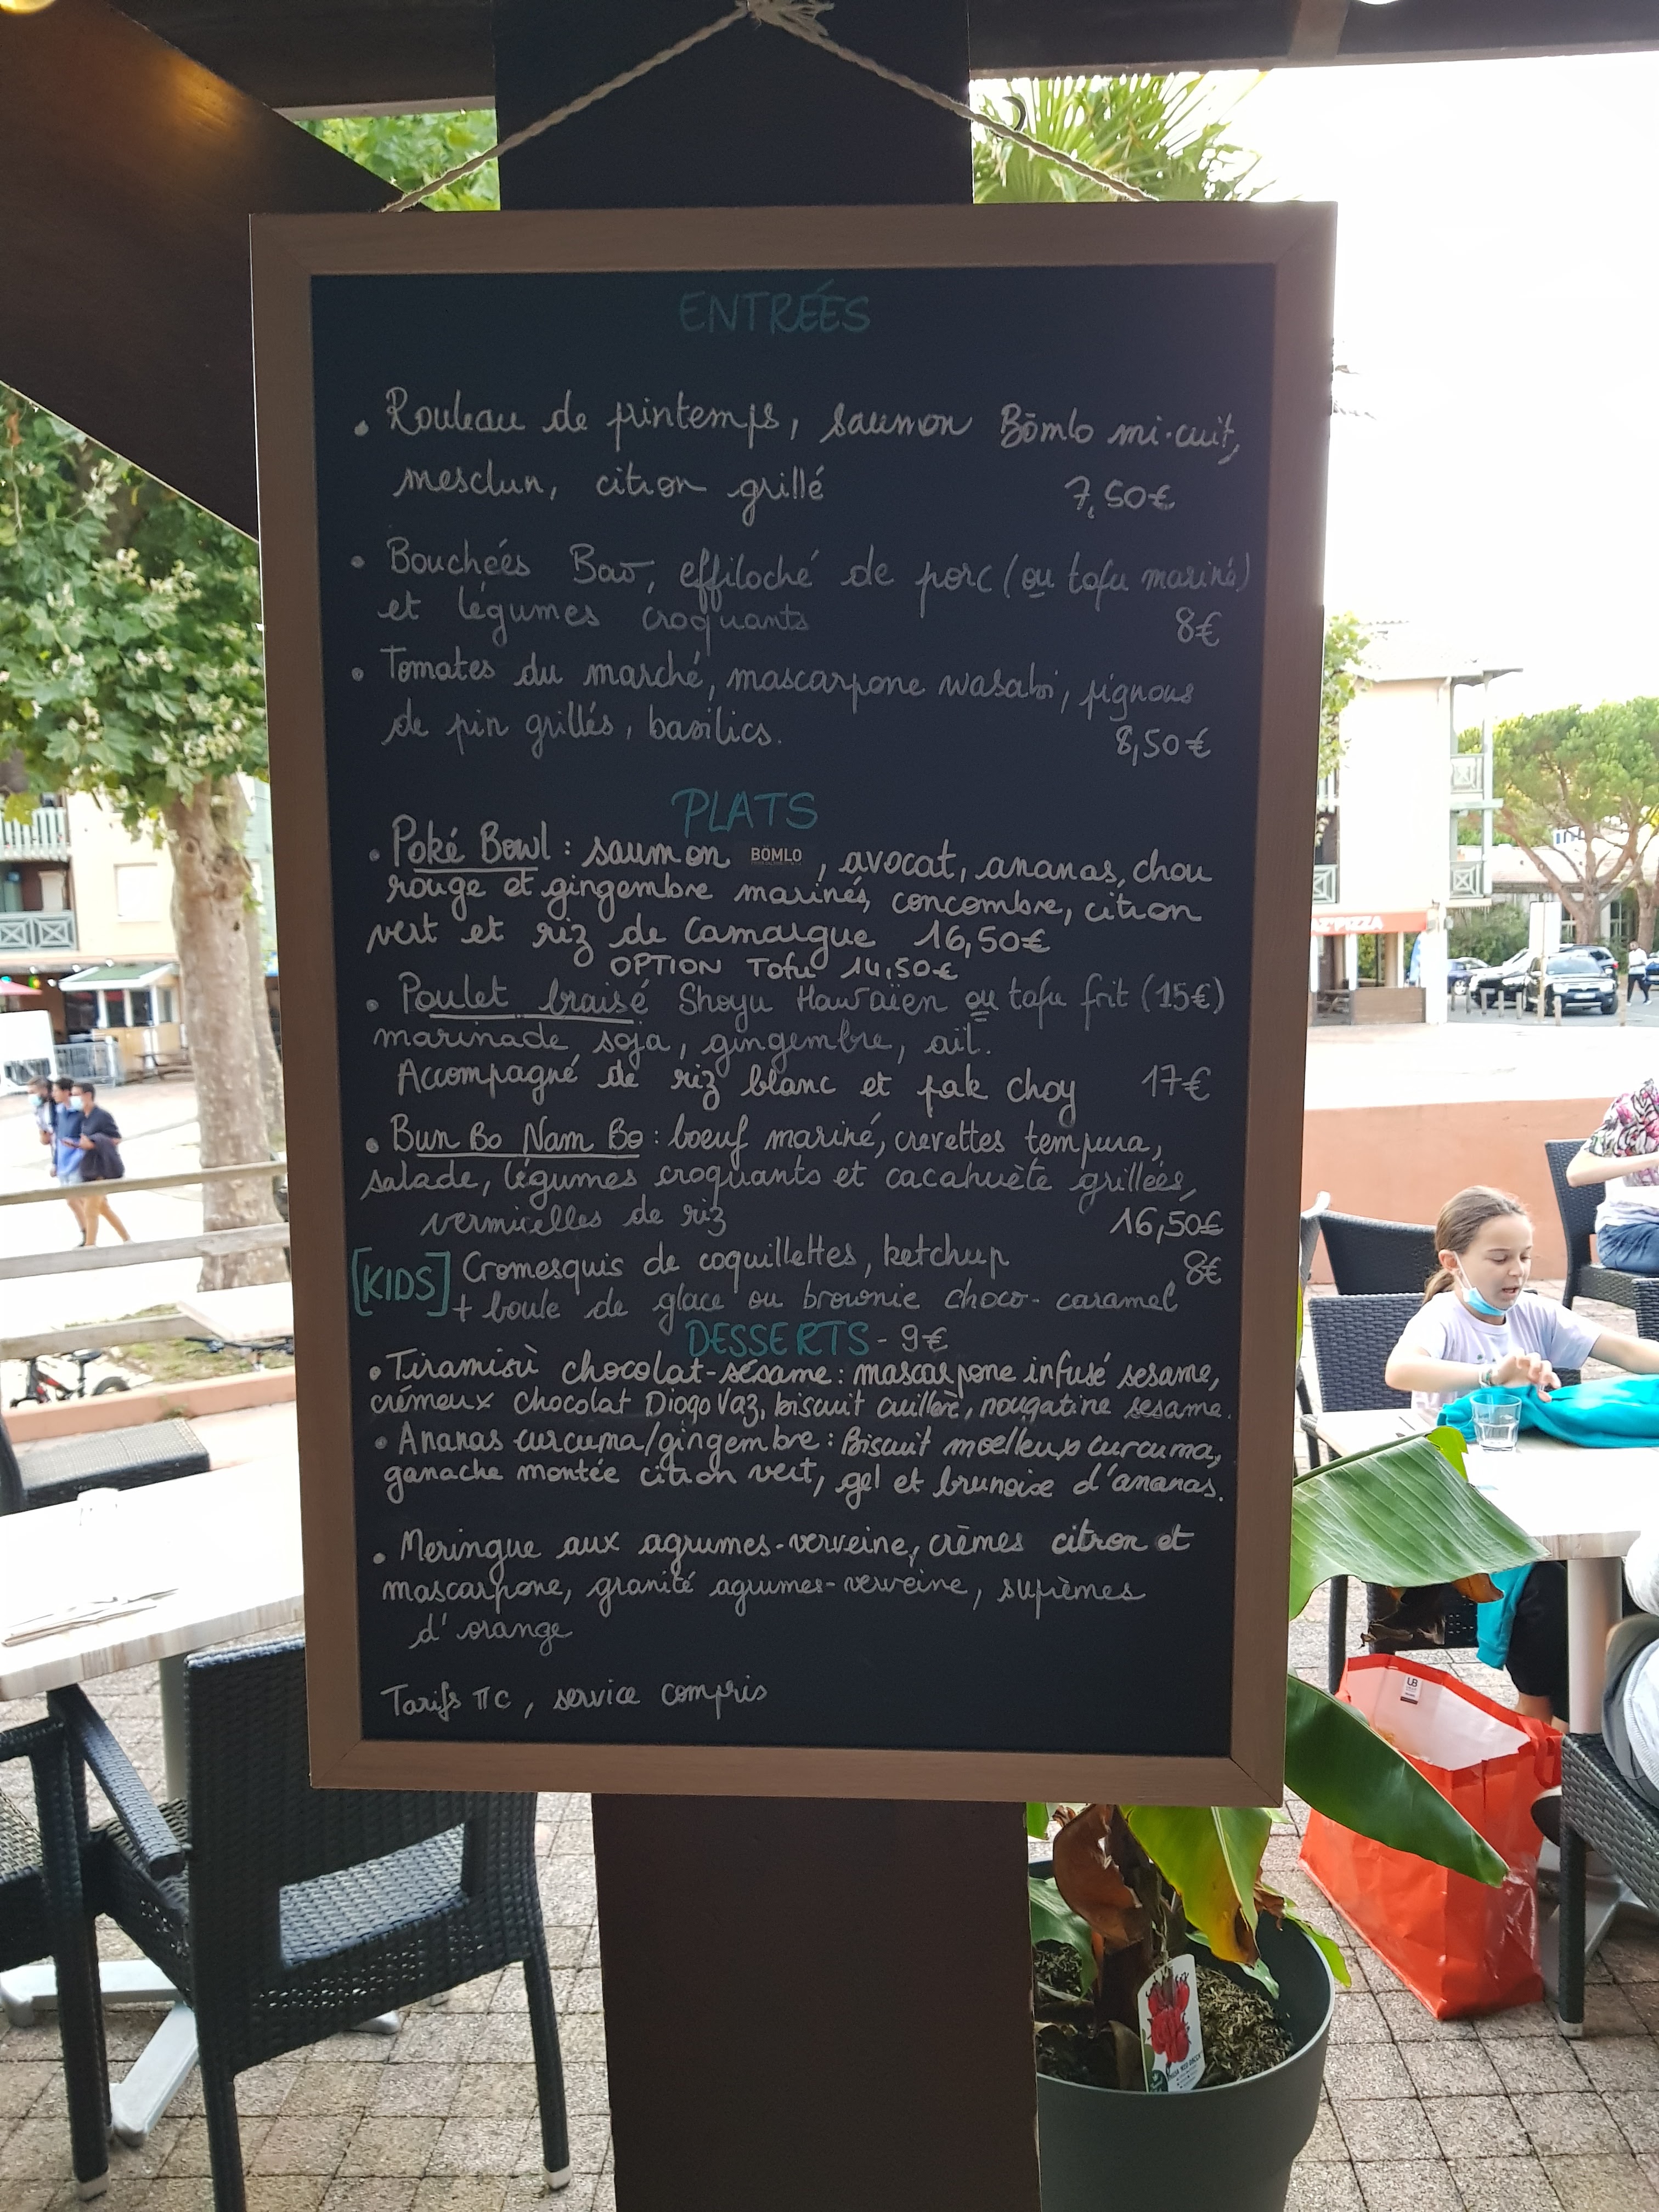 ENTRÉES
• Rouleau de printemps, saumon Bömlo mi-cuit,
mesclun, citron grillé 7,50€
• Bouchées Bao, effiloché de porc (ou tofu mariné)
et légumes croquants 8€
• Tomates du marché, mascarpone wasabi, pignons
de pin grillés, basilics. 8,50€
PLATS
• Poké Bowl : saumon BÖMLO, avocat, ananas, chou
rouge et gingembre marinés, concombre, citron
vert et riz de Camargue 16,50€
OPTION Tofu 14,50€
• Poulet braisé Shoyu Hawaïen ou tofu frit (15€)
marinade soja, gingembre, ail.
Accompagné de riz blanc et pak choy 17€
• Bun Bo Nam Bo : boeuf mariné, crevettes tempura,
salade, légumes croquants et cacahuète grillées,
vermicelles de riz 16,50€
[KIDS] Cromesquis de coquillettes, ketchup 8€
+ boule de glace ou brownie choco-caramel
DESSERTS - 9€
• Tiramisù chocolat-sésame : mascarpone infusé sesame,
crémeux chocolat Diogo Vaz, biscuit cuillère, nougatine sesame.
• Ananas curcuma/gingembre : Biscuit moelleux curcuma,
ganache montée citron vert, gel et brunoise d'ananas.
• Meringue aux agrumes-verveine, crèmes citron et
mascarpone, granité agrumes-verveine, suprèmes
d'orange
Tarifs TTC, service compris
PIZZA